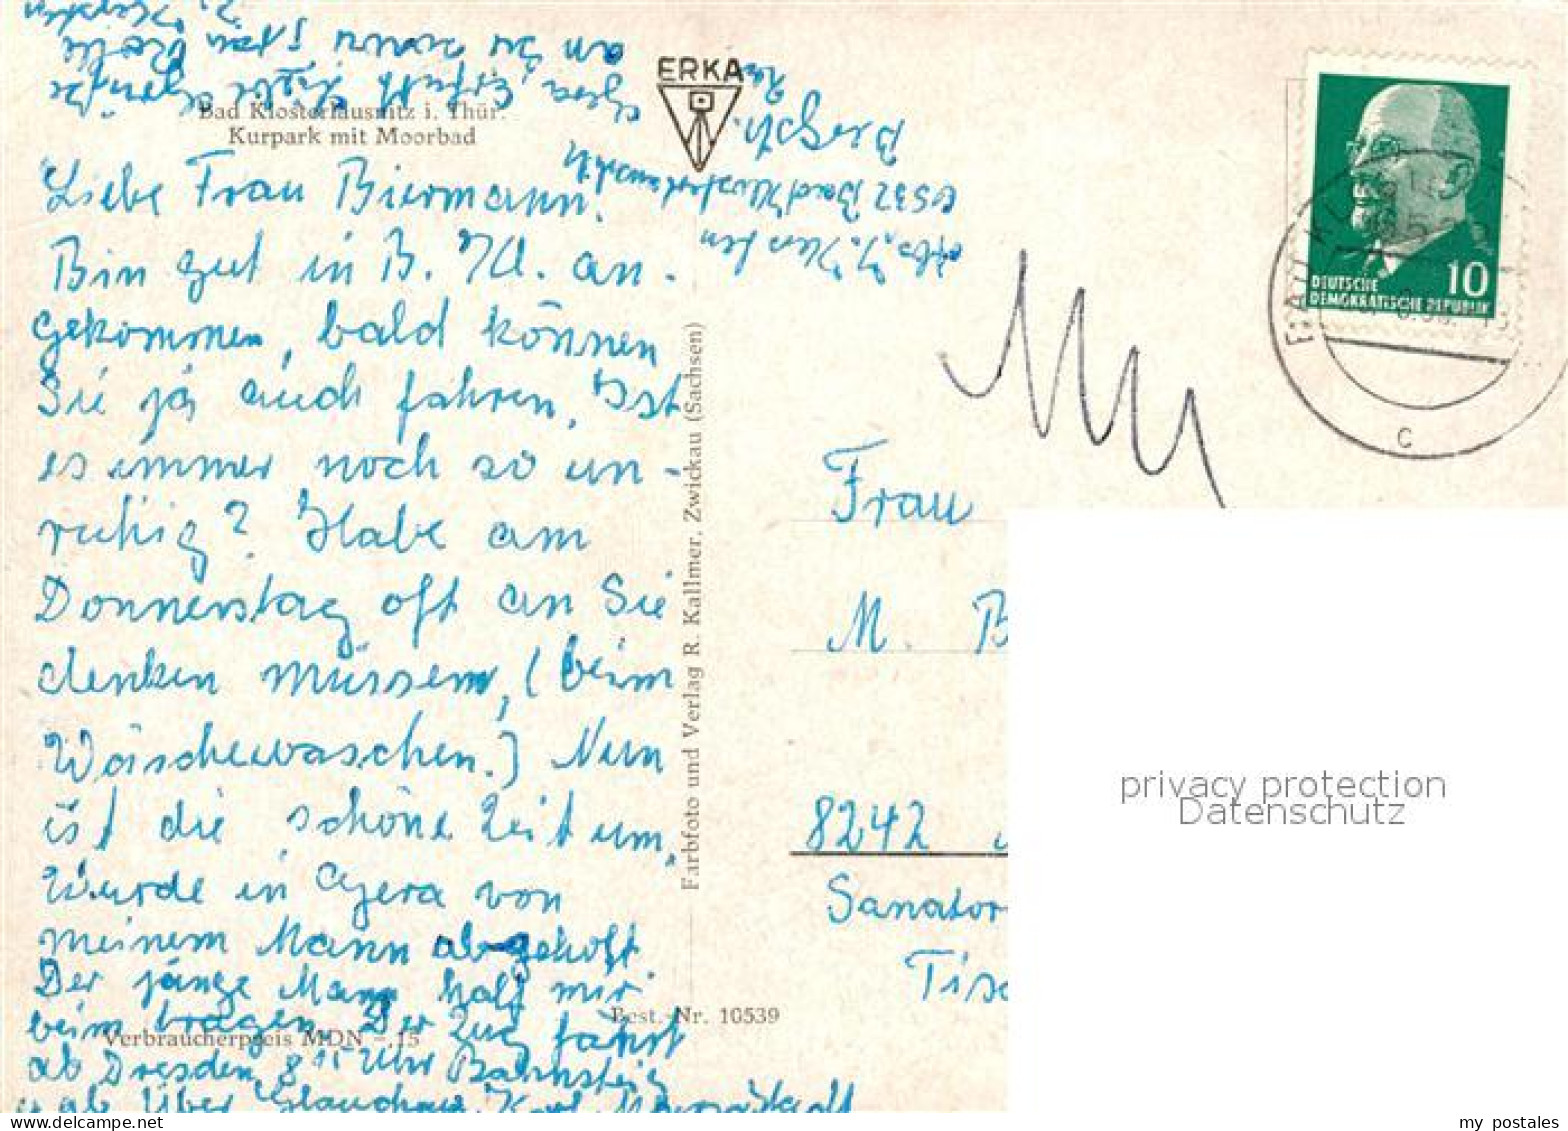 ERKA
Bad Klosterlausnitz i. Thür.
Kurpark mit Moorbad
Liebe Frau Biermann!
Bin gut in B. Kl. an-
gekommen, bald können
Sie ja auch fahren. Ist
es immer noch so un-
ruhig? Habe am
Donnerstag oft an Sie
denken müssen, (beim
Wäschewaschen.) Nun
ist die schöne Zeit um,
Wurde in Gera von
meinem Mann abgeholt
Der junge Mann half mir
beim tragen Der Zug fährt
ab Dresden 8 15 Uhr Bahnsteig
ab über Glauchau, Karl Marxstadt
Gera, Erfurt
an
Abs. J.
6532 Bad Klosterlausnitz
Farbfoto und Verlag R. Kallmer, Zwickau (Sachsen)
Best.-Nr. 10539
Verbraucherpreis MDN -,15
DEUTSCHE
DEMOKRATISCHE REPUBLIK
10
BAD KL
c
Frau
M. B
8242
Sanator
Tisc
privacy protection
Datenschutz
my postales